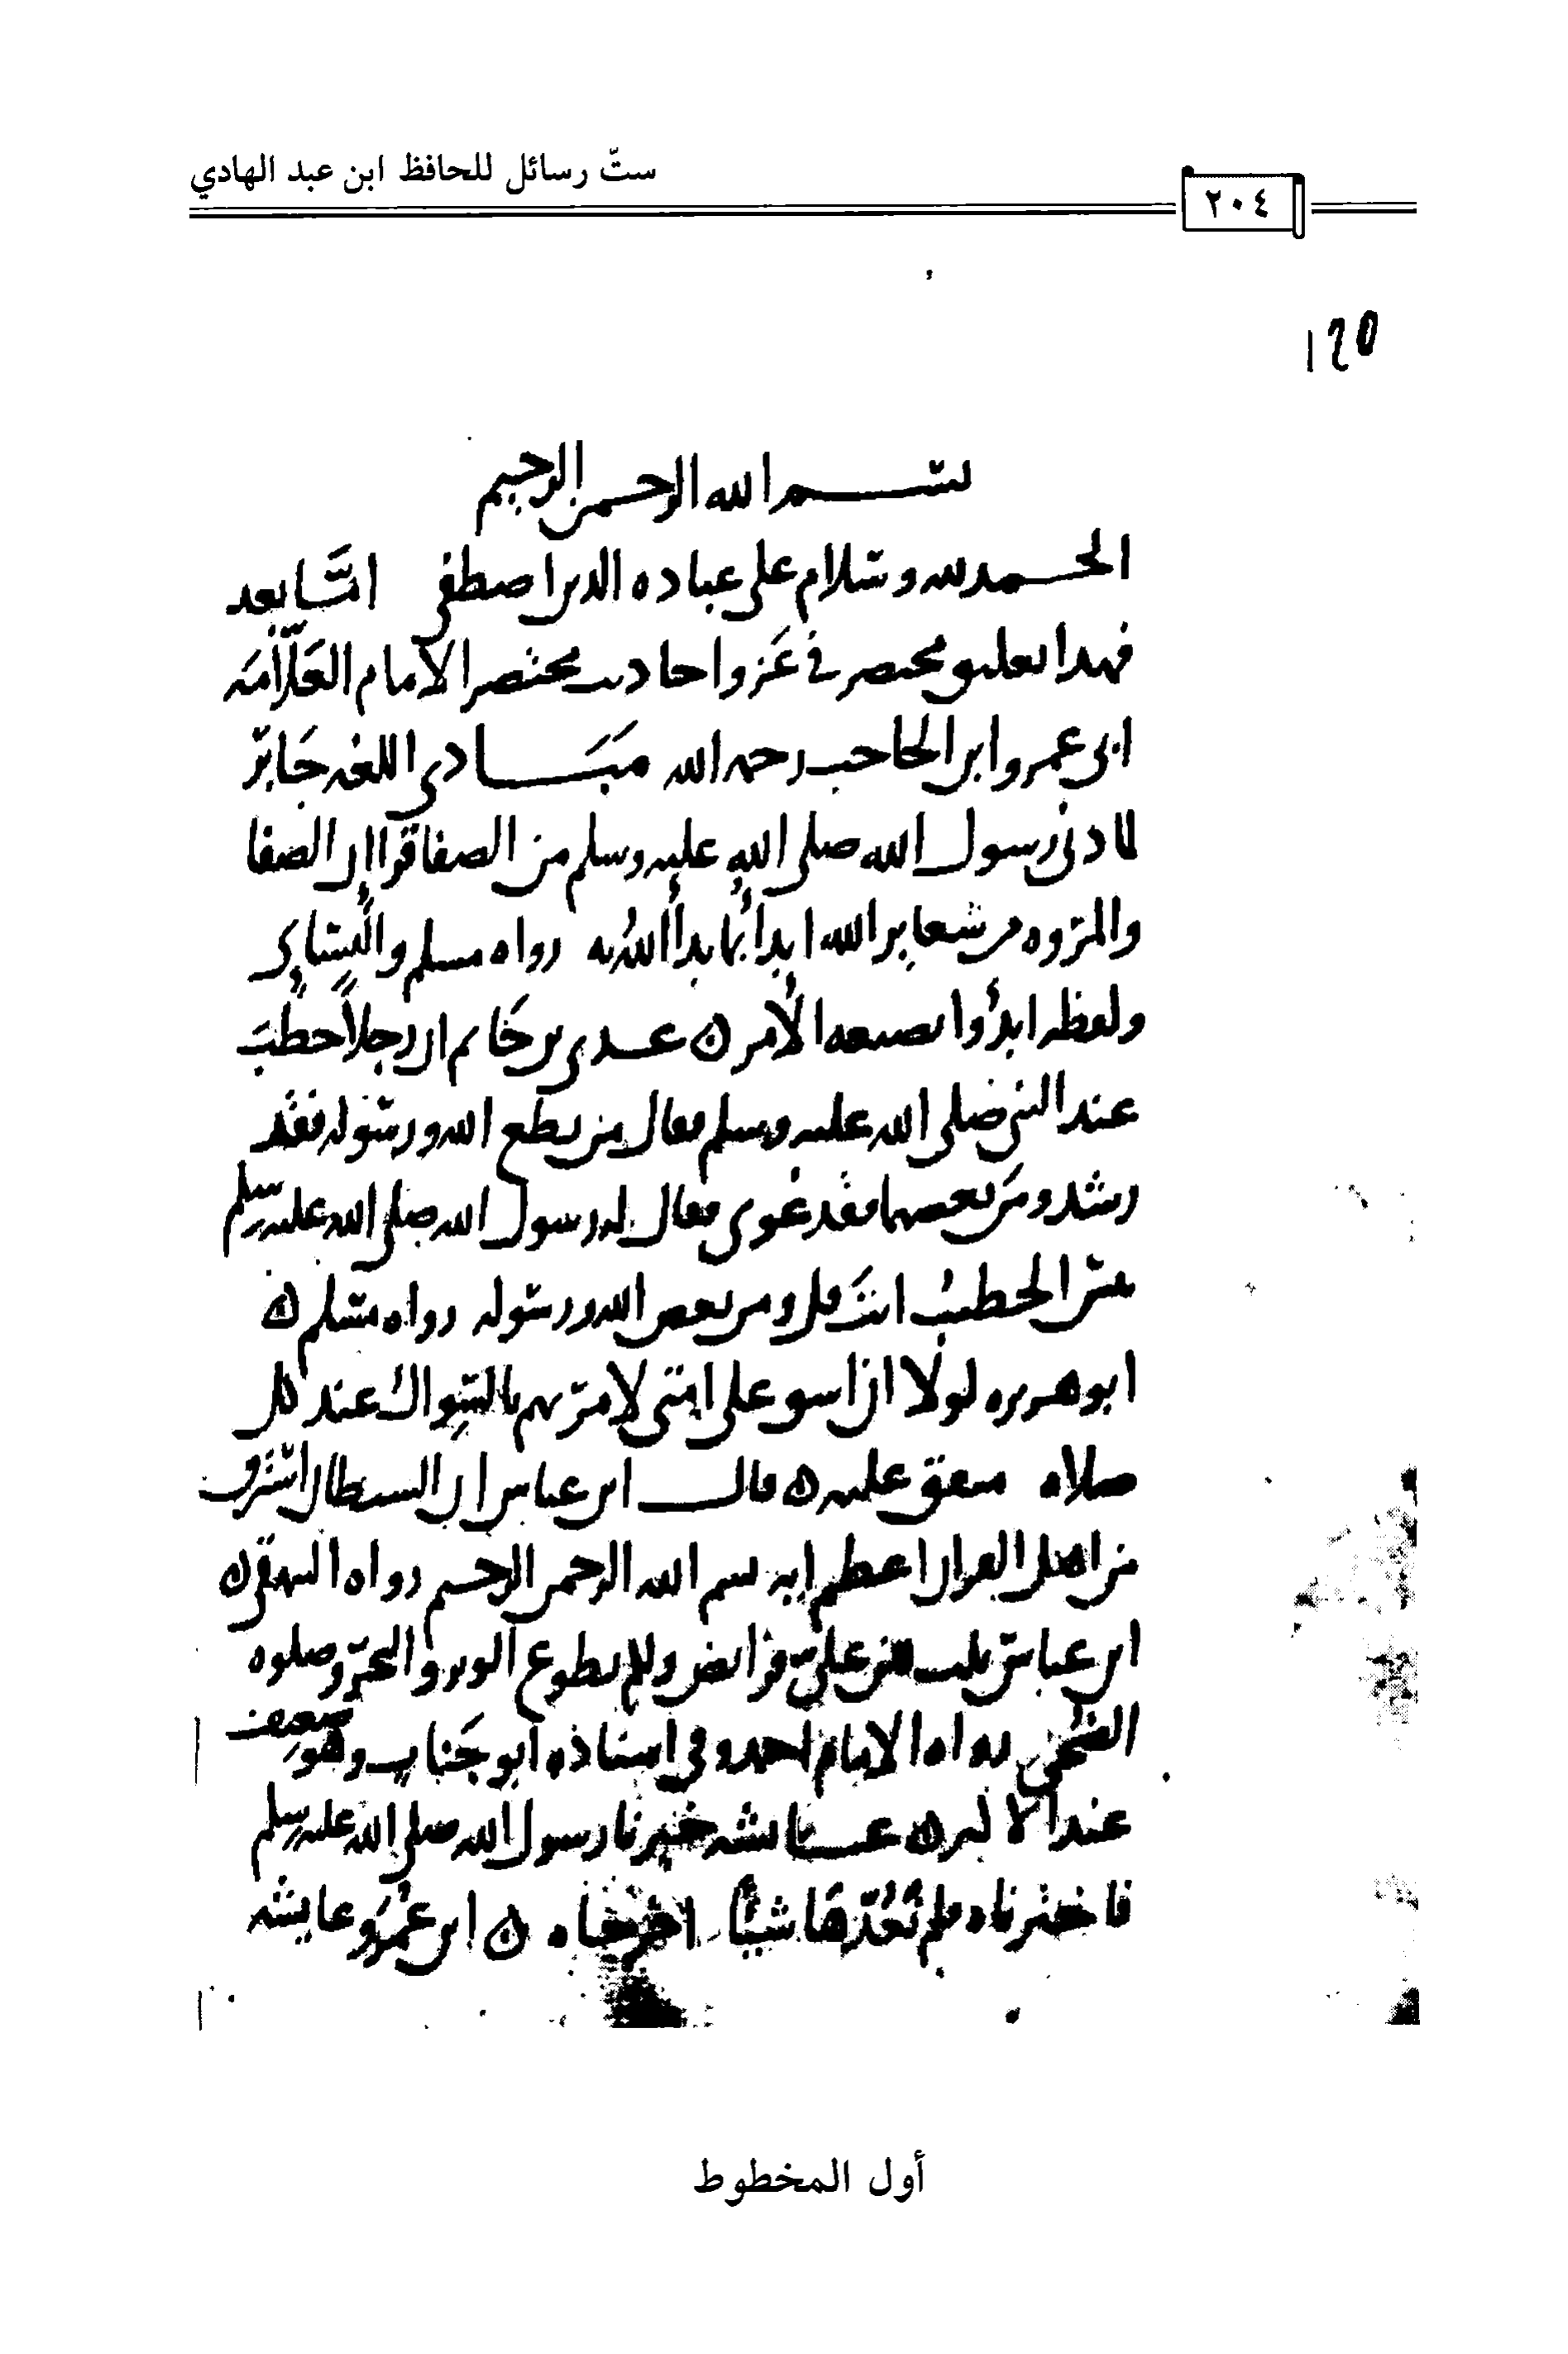 ستّ رسائل للحافظ ابن عبد الهادي
٢٠٤
١٤٥
بسم الله الرحمن الرحيم
الحمد لله وسلام على عباده الذين اصطفى أمّا بعد
فهذا تعليق مختصر في عَزو احاديث مختصر الامام العَلّامَه
ابي عمرو ابن الحاجب رحمه الله مَبَادى اللغه جَابر
لما دنى رسول الله صلى الله عليه وسلم من الصفا قرا إن الصفا
والمروه من شعاير الله ابدأ بما بدأ اللهُ به رواه مسلم والنسَاي
ولفظه ابدؤا بصيغه الأمر ٥ عدى بن حَاتم ان رجلاً خطبَ
عند النبي صلى الله عليه وسلم فقال من يطع الله ورسوله فقد
رشد ومَن يعصهما فقد غوى فقال له رسول الله صلى الله عليه وسلم
بئس الخطيبُ انتَ قل ومن يعص الله ورسوله رواه مسلم ٥
ابو هريره لولا ان اشق على امتى لامرتهم بالسواك عند كل
صلاه متفق عليه ٥ قال ابن عباس ان الشيطان استرق
من اهل القران اعظم ايه بسم الله الرحمن الرحيم رواه البيهقى ٥
ابن عباس ثلث هن علىّ فرائض ولكم تطوع الوتر والنحر وصلوه
الضُحى رواه الامام احمد وفي اسناده أبو جَناب وهو ضعيف
عند الاكثر ٥ عايشه خيرنا رسول الله صلى الله عليه وسلم
فاخترناه فلم يَعُدّهَا شيئاً اخرجاه ٥ ابن عُمَر وعايشه
أول المخطوط